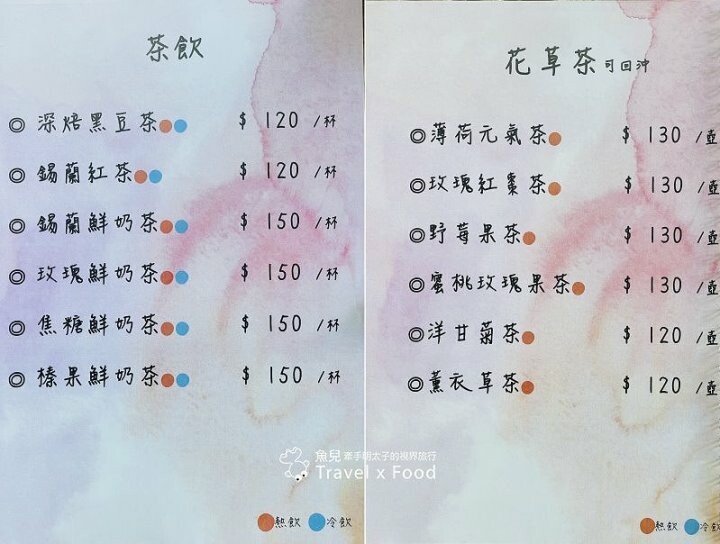 茶飲
◎ 深焙黑豆茶 $ 120 /杯
◎ 錫蘭紅茶 $ 120 /杯
◎ 錫蘭鮮奶茶 $ 150 /杯
◎ 玫瑰鮮奶茶 $ 150 /杯
◎ 焦糖鮮奶茶 $ 150 /杯
◎ 榛果鮮奶茶 $ 150 /杯
熱飲 冷飲
花草茶 可回沖
◎ 薄荷元氣茶 $ 130 /壺
◎ 玫瑰紅棗茶 $ 130 /壺
◎ 野莓果茶 $ 130 /壺
◎ 蜜桃玫瑰果茶 $ 130 /壺
◎ 洋甘菊茶 $ 120 /壺
◎ 薰衣草茶 $ 120 /壺
熱飲 冷飲
魚兒 牽手明太子的視界旅行
Travel x Food